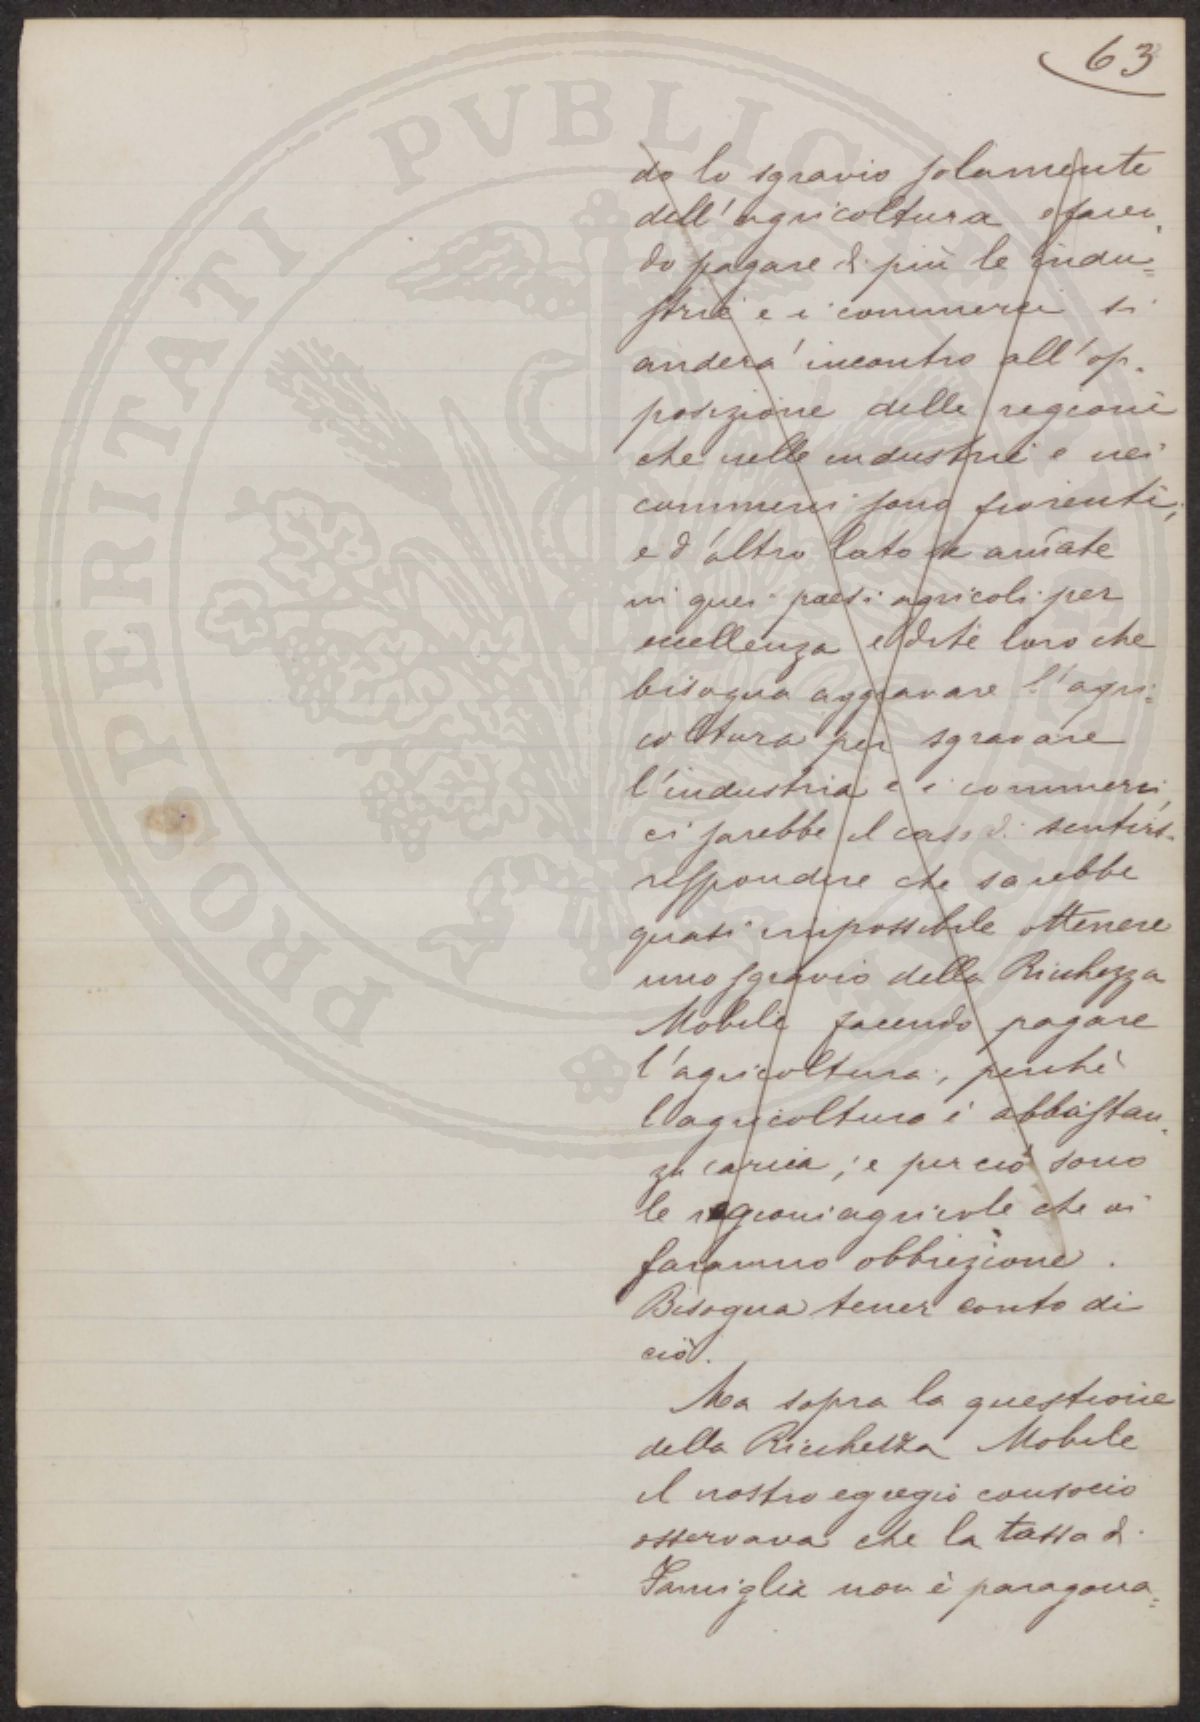 63
do lo sgravio solamente
dell'agricoltura e facen-
do pagare di più le indu=
strie e i commerci si
anderà incontro all'op-
posizione delle regioni
che nelle industrie e nei
commerci sono fiorenti;
e d'altro lato se andate
in quei paesi agricoli per
eccellenza e dite loro che
bisogna aggravare l'agri-
coltura per sgravare
l'industria e i commerci,
ci sarebbe il caso di sentirsi
rispondere che sarebbe
quasi impossibile ottenere
uno sgravio della Ricchezza
Mobile facendo pagare
l'agricoltura, perchè
l'agricoltura è abbastan-
za carica; e perciò sono
le regioni agricole che vi
faranno obbiezione.
Bisogna tener conto di
ciò.
Ma sopra la questione
della Ricchezza Mobile
il nostro egregio consocio
osservava che la tassa di
Famiglia non è paragona=
PROSPERITATI PVBLICAE